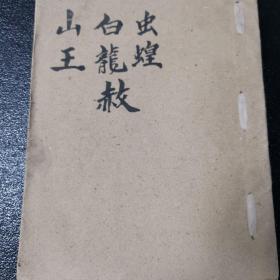 虫蝗
白龍赦
山王